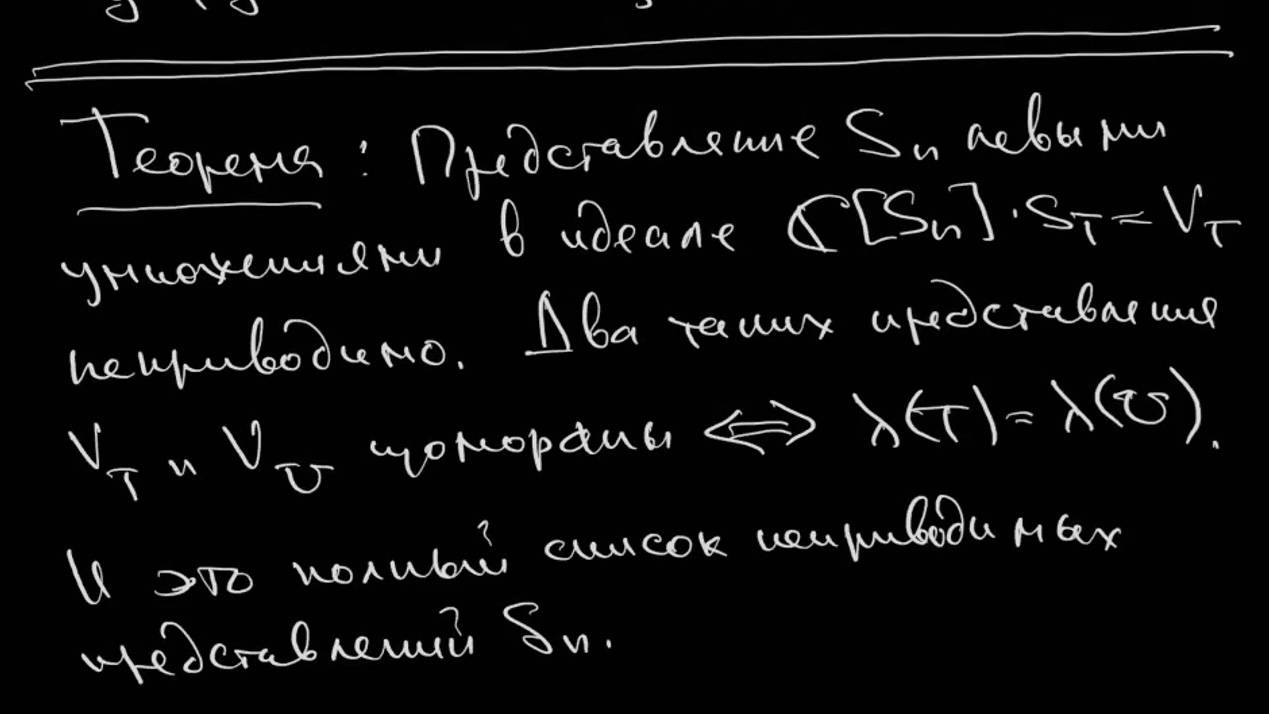 Теорема: Представление Sₙ левыми
умножениями в идеале ℂ[Sₙ]·s_T = V_T
неприводимо. Два таких представления
V_T и V_U изоморфны ⟺ λ(T) = λ(U).
И это полный список неприводимых
представлений Sₙ.